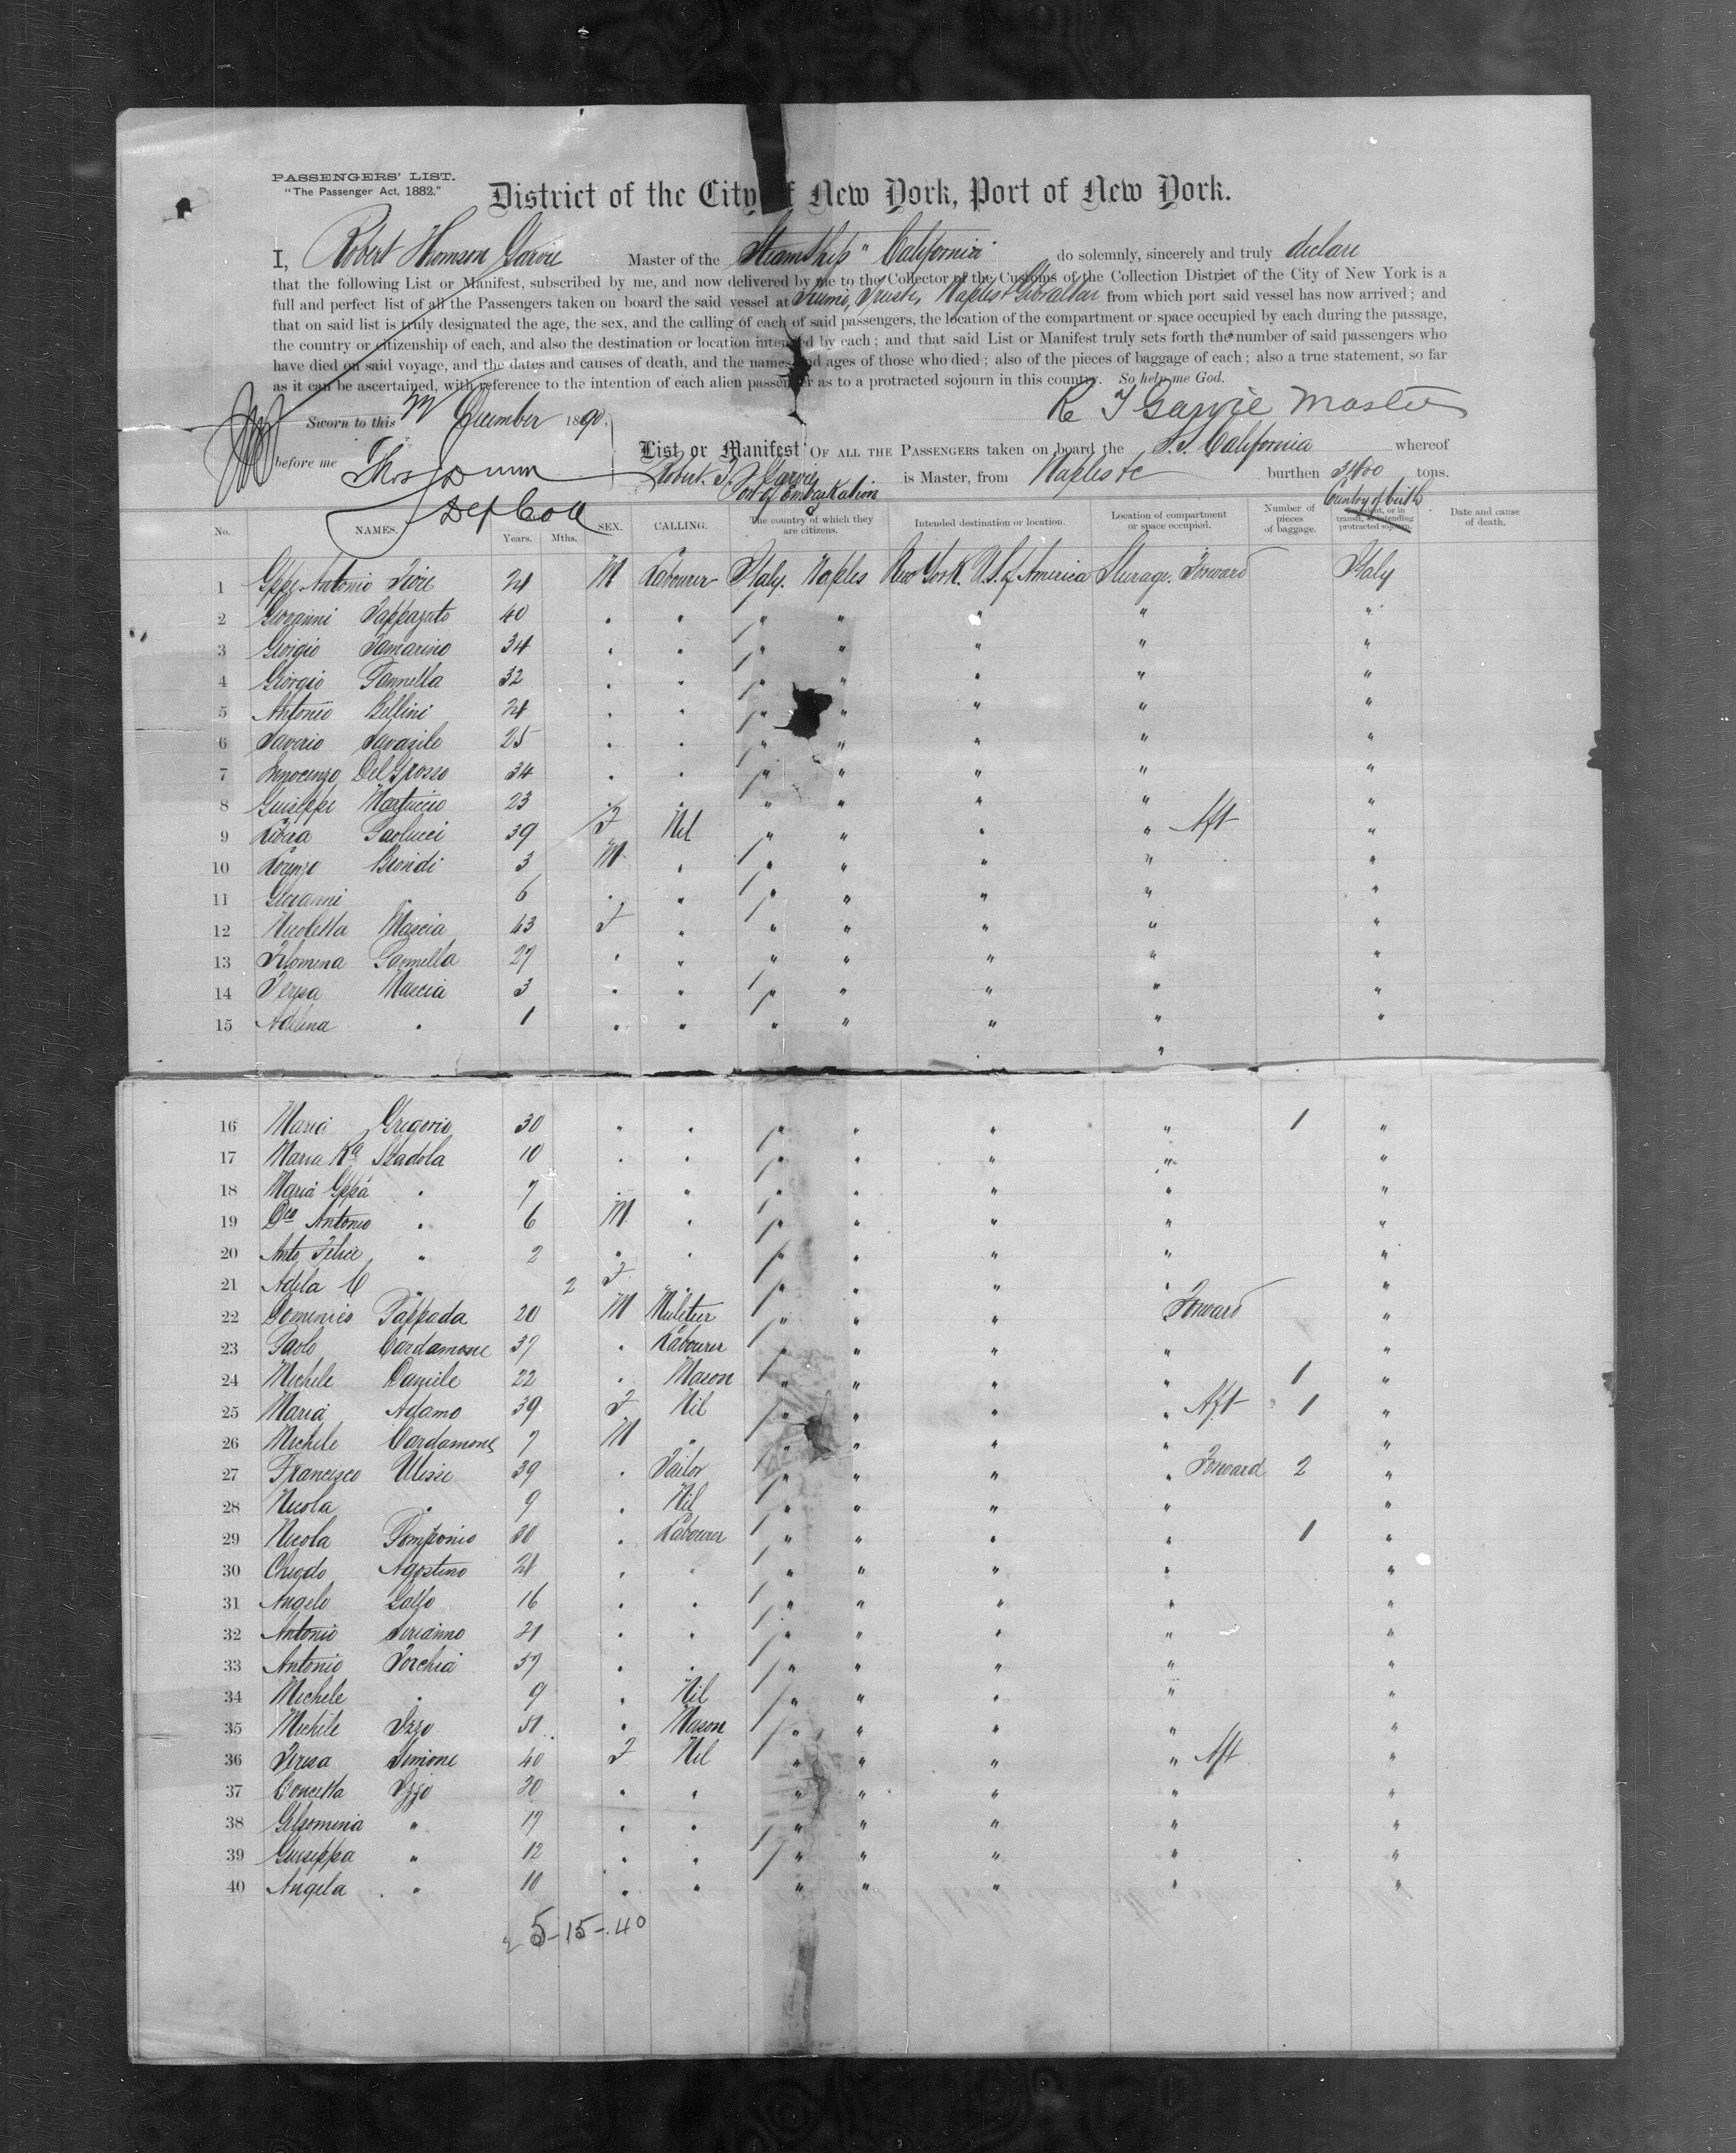 PASSENGERS' LIST.
"The Passenger Act, 1882."
District of the City of New York, Port of New York.
I, Robert Thomson Garvie Master of the Steamship "California" do solemnly, sincerely and truly declare
that the following List or Manifest, subscribed by me, and now delivered by me to the Collector of the Customs of the Collection District of the City of New York is a
full and perfect list of all the Passengers taken on board the said vessel at Fiume, Trieste, Naples & Gibraltar from which port said vessel has now arrived; and
that on said list is truly designated the age, the sex, and the calling of each of said passengers, the location of the compartment or space occupied by each during the passage,
the country or citizenship of each, and also the destination or location intended by each; and that said List or Manifest truly sets forth the number of said passengers who
have died on said voyage, and the dates and causes of death, and the names and ages of those who died; also of the pieces of baggage of each; also a true statement, so far
as it can be ascertained, with reference to the intention of each alien passenger as to a protracted sojourn in this country. So help me God.
R T Garvie Master
Sworn to this December 1890.
before me Thos Dunn
Dep Coll
List or Manifest OF ALL THE PASSENGERS taken on board the S.S. California whereof
Robert T. Garvie is Master, from Naples &c burthen 3400 tons.
Port of Embarkation Country of birth
No. NAMES. Years. Mths. SEX. CALLING. The country of which they are citizens. Intended destination or location. Location of compartment or space occupied. Number of pieces of baggage. Transient, or in transit, or intending protracted sojourn. Date and cause of death.
1 Gppe Antonio Fiore 24 M Labourer Italy. Naples New York. U.S. of America Steerage. Forward Italy
2 Giovanni Pappazato 40 " " " " " " "
3 Giorgio Tamarino 34 " " " " " " "
4 Giorgio Pannella 32 " " " " " " "
5 Antonio Bellini 24 " " " " " " "
6 Saverio Savazile 25 " " " " " " "
7 Innocenzo Del Grosso 34 " " " " " " "
8 Guiseppe Martuccio 23 " " " " " " "
9 Libera Paolucci 39 F Nil " " " " Aft "
10 Lorenzo Biondi 3 M " " " " " "
11 Giovanni " 6 " " " " " " "
12 Nicoletta Mascia 43 F " " " " " "
13 Filomena Pannella 27 " " " " " " "
14 Teresa Mascia 3 " " " " " " "
15 Adelina " 1 " " " " " " "
16 Maria Gregorio 30 " " " " " " 1 "
17 Maria Ra Stadola 10 " " " " " " "
18 Maria Gppa " 7 " " " " " " "
19 Dco Antonio " 6 M " " " " " "
20 Anto Felice " 2 " " " " " " "
21 Adela C " 2 F " " " " " "
22 Domenico Pappada 20 M " " " Forward "
23 Paolo Cardamone 37 " Labourer " " " " "
24 Michele Daniele 22 " Mason " " " " 1 "
25 Maria Adamo 39 F Nil " " " " Aft 1 "
26 Michele Cardamone 7 M " " " " " "
27 Francesco Ulisse 39 " Tailor " " " " Forward 2 "
28 Nicola " 9 " Nil " " " " "
29 Nicola Pomponio 30 " Labourer " " " " 1 "
30 Agostino 24 " " " " " " "
31 Angelo Gallo 16 " " " " " " "
32 Antonio Serianno 21 " " " " " " "
33 Antonio Torchia 37 " " " " " " "
34 Michele " 9 " Nil " " " " "
35 Michele Izzo 51 " Mason " " " " "
36 Teresa Simone 40 F Nil " " " " Aft "
37 Concetta Izzo 20 " " " " " " "
38 Gelsomina " 17 " " " " " " "
39 Guiseppa " 12 " " " " " " "
40 Angela " 10 " " " " " " "
5-15-40